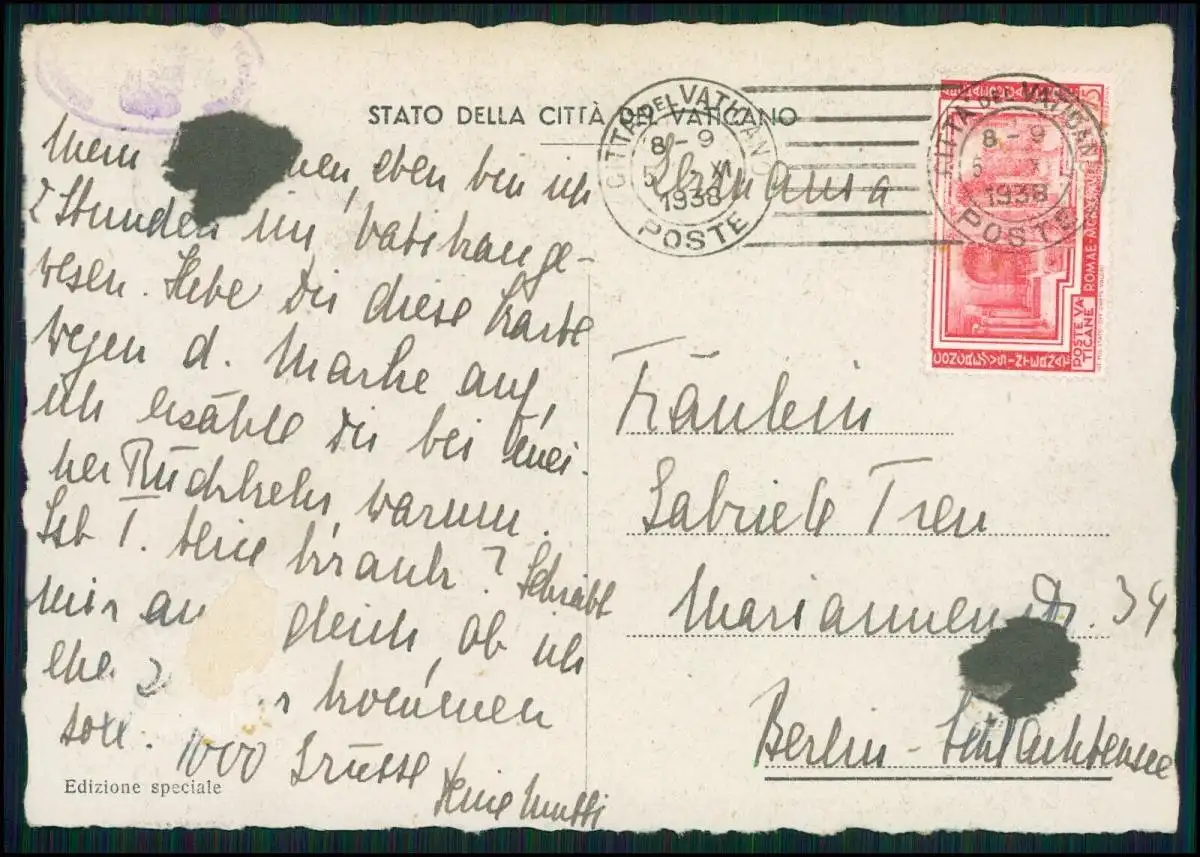 STATO DELLA CITTÀ DEL VATICANO
CITTÀ DEL VATICANO
8-9
5 XI
1938
POSTE
CITTÀ DEL VATICANO
8-9
5 XI
1938
POSTE
Germania
POSTE VATICANE
ROMAE
Mein eben bin ich
2 Stunden im Vatikan ge-
wesen. Hebe Dir diese Karte
wegen d. Marke auf,
ich erzähle Dir bei mei-
ner Rückkehr warum.
Ist T. sehr krank? Schreibt
mir gleich, ob ich
ehe kommen
soll. 1000 Grüsse
Deine Mutti
Edizione speciale
Fräulein
Gabriele Treu
Mariannenstr. 34
Berlin-Schlachtensee